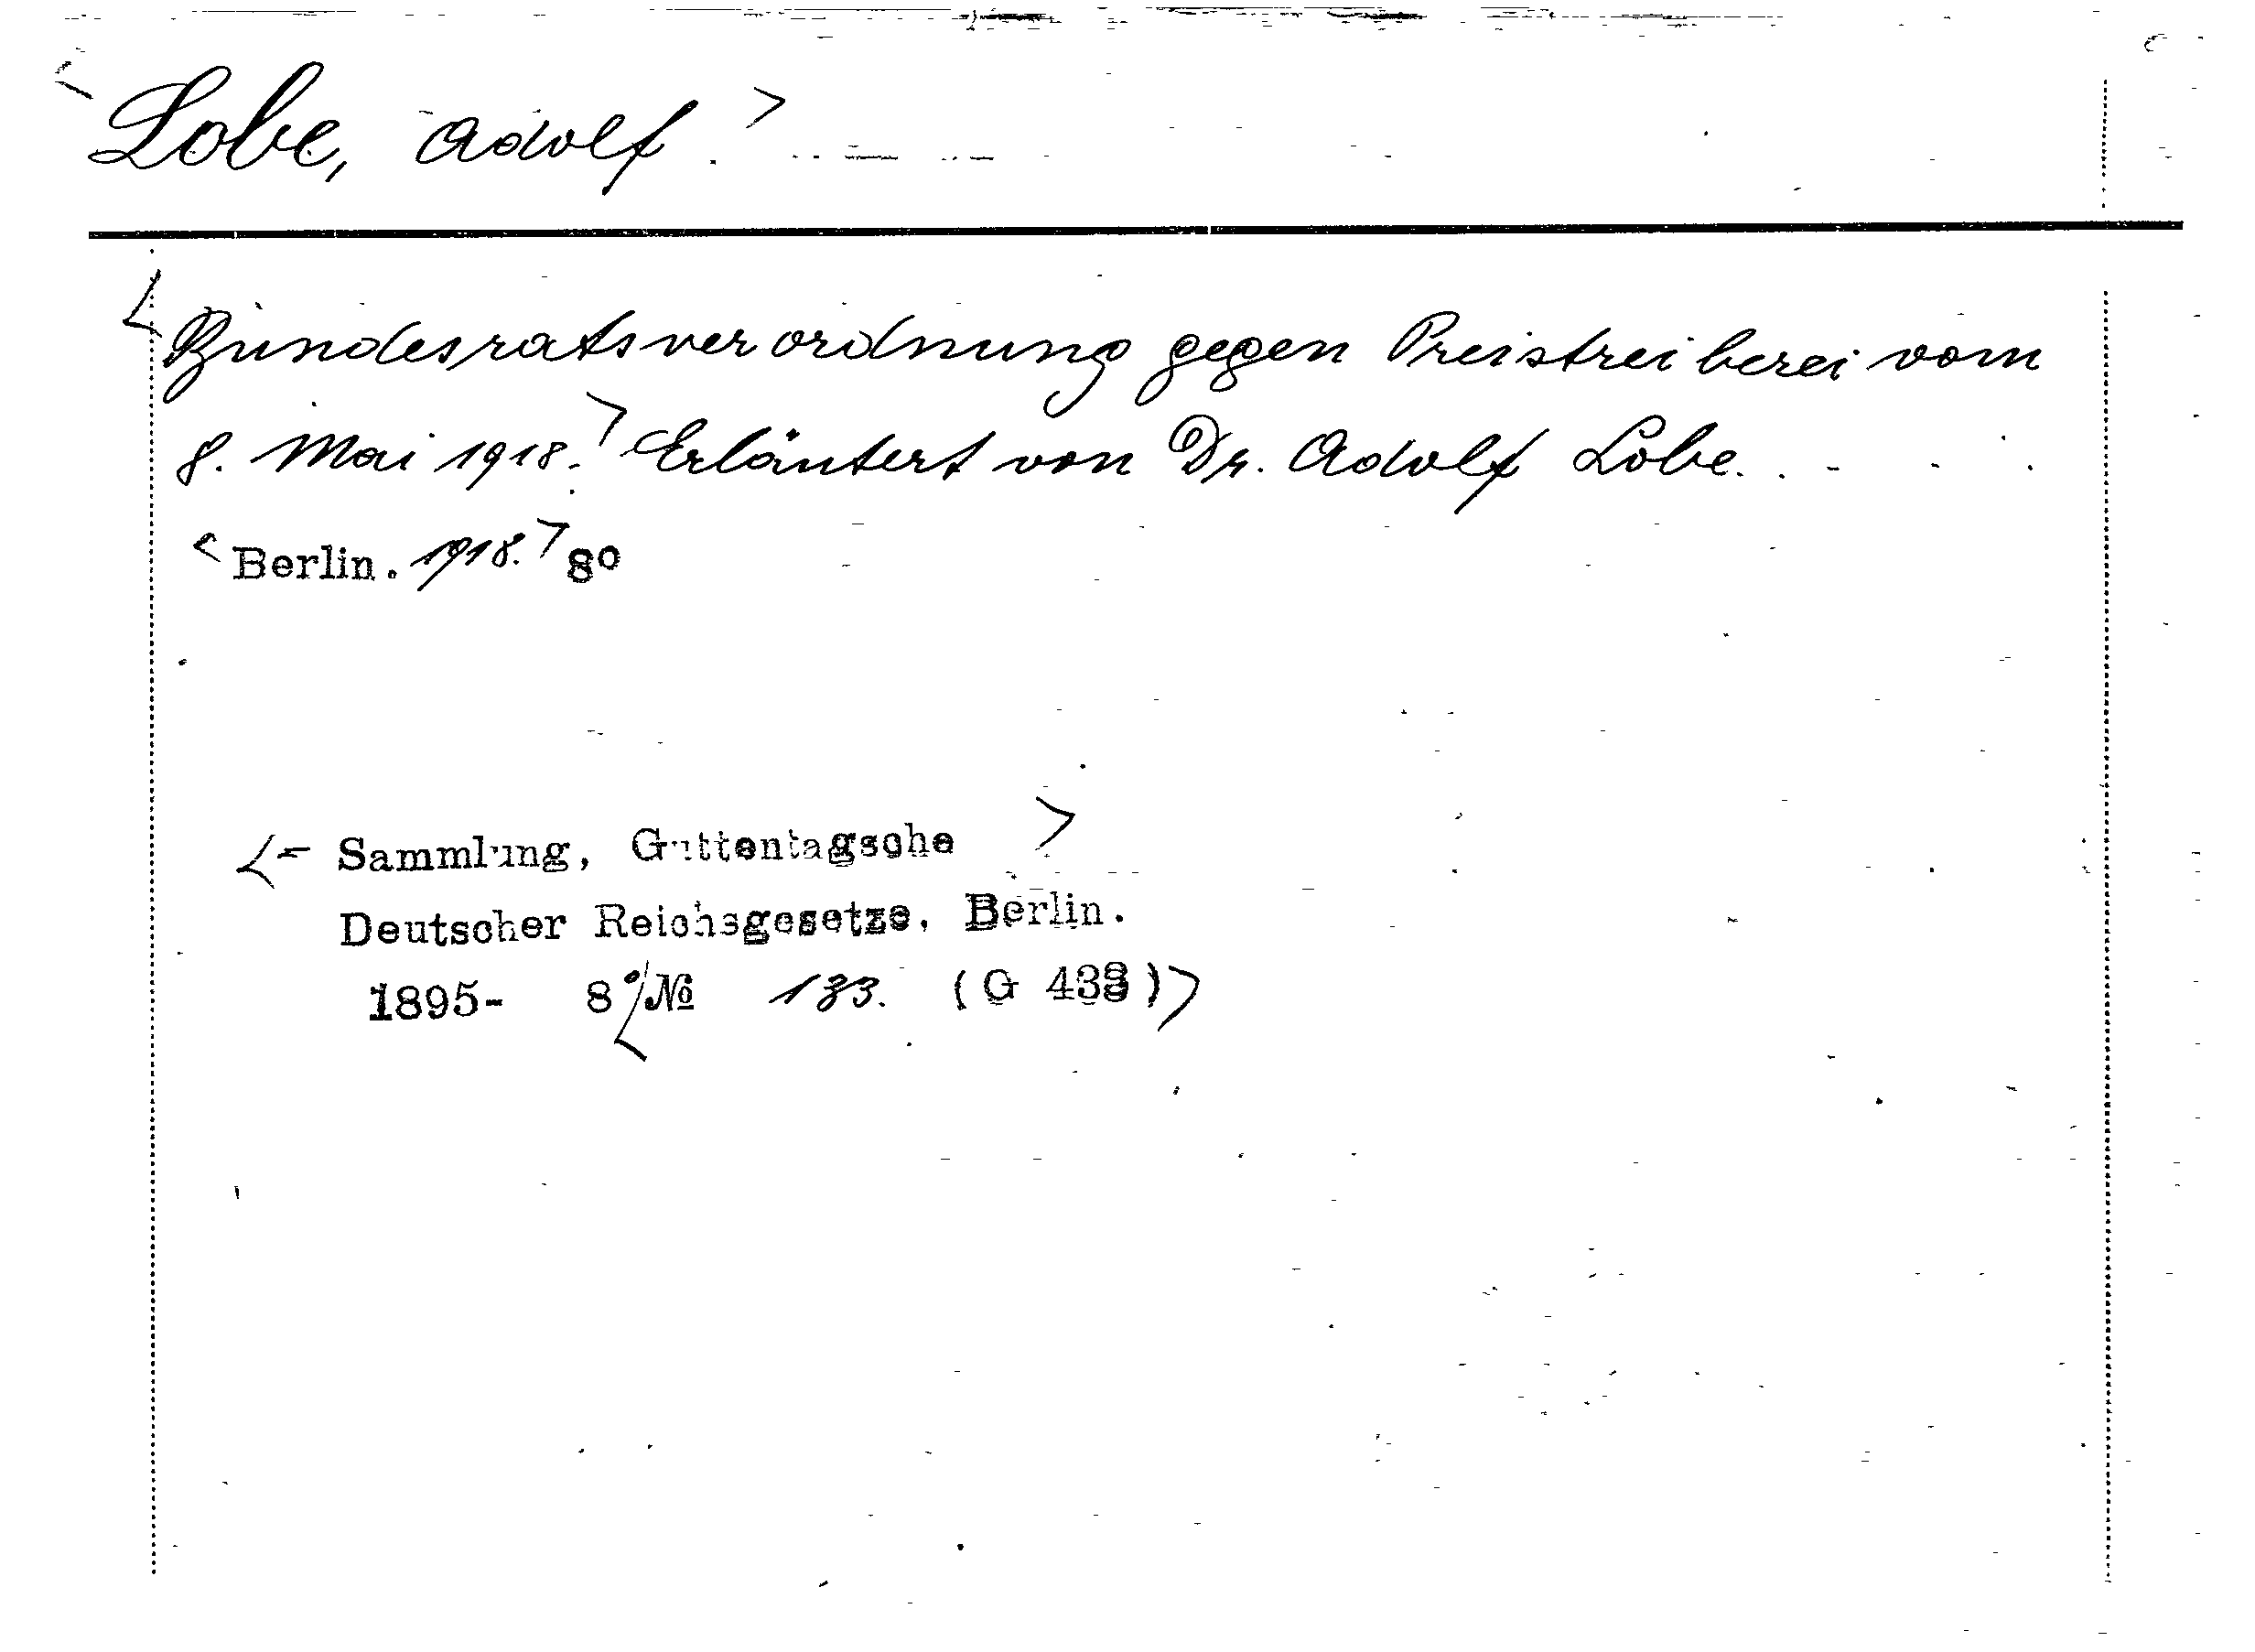 <Lobe, Adolf.>
<Bundesratsverordnung gegen Preistreiberei vom
8. Mai 1918.> Erläutert von Dr. Adolf Lobe.
<Berlin. 1918.> 8º
<= Sammlung, Guttentagsche >
Deutscher Reichsgesetze, Berlin.
1895- 8º/<№ 133. (G 433)>